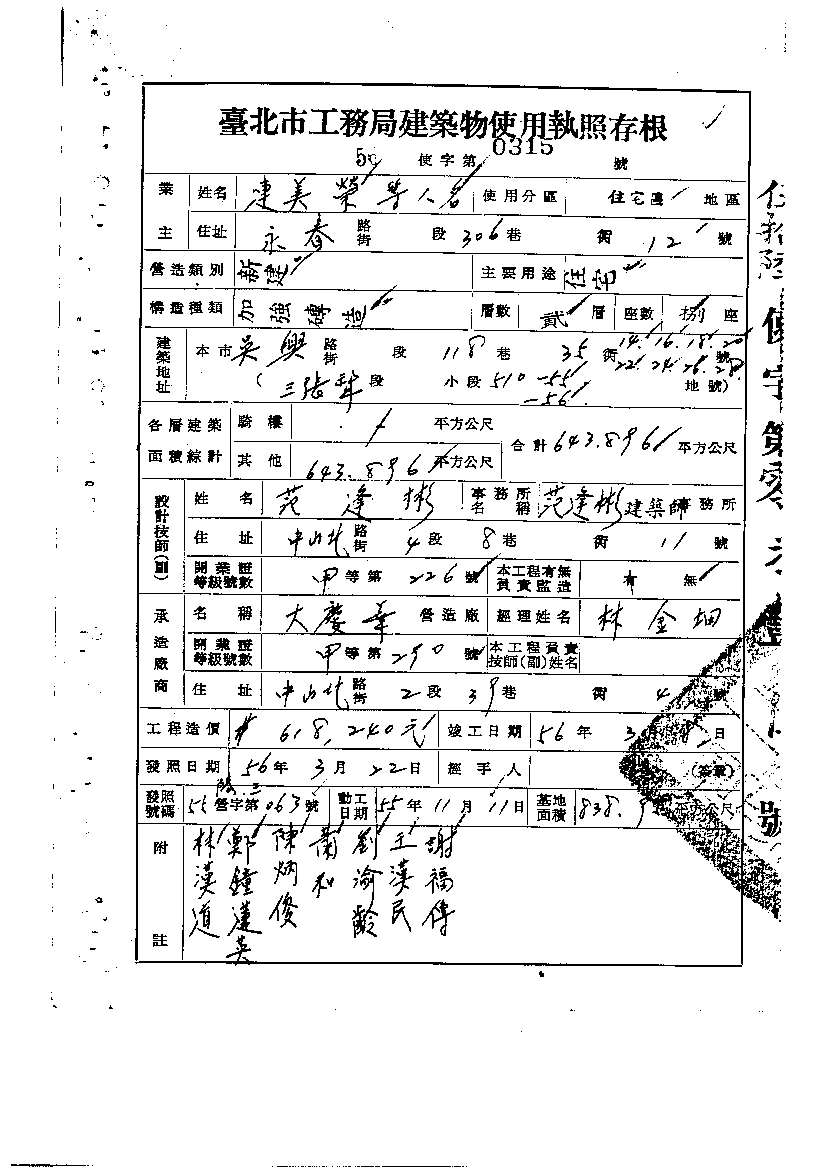 臺北市工務局建築物使用執照存根
56 使字第 0315 號
業主 姓名 連美榮等八名 使用分區 住宅區 地區
住址 永春 路街 段 306 巷 衖 12 號
營造類別 新建 主要用途 住宅
構造種類 加強磚造 層數 貳 層 座數 捌 座
建築地址 本市 吳興 路街 段 118 巷 35 衖 14.16.18.20 22.24.26.28. 號
(三張犂 段 小段 510-55 -56 地號)
各層建築面積綜計 騎樓 平方公尺 合計 643.896 平方公尺
其他 643.896 平方公尺
設計技師(副) 姓名 范逢彬 事務所名稱 范逢彬建築師事務所
住址 中山北 路街 4 段 8 巷 衖 11 號
開業證等級號數 甲 等第 226 號 本工程有無負責監造 有 無
承造廠商 名稱 大慶華 營造廠 經理姓名 林金
開業證等級號數 甲 等第 290 號 本工程負責技師(副)姓名
住址 中山北 路街 2 段 39 巷 衖 4 號
工程造價 618,240元 竣工日期 56 年 3 月 日
發照日期 56 年 3 月 22 日 經手人 (簽章)
發照號碼 55 營字第 063 號 動工日期 55 年 11 月 11 日 基地面積 838.9 平方公尺
附註
謝福傳
王漢民
劉渝齡
蕭和
陳炳俊
鄭鐘蓮英
林漢道
使字第零 號